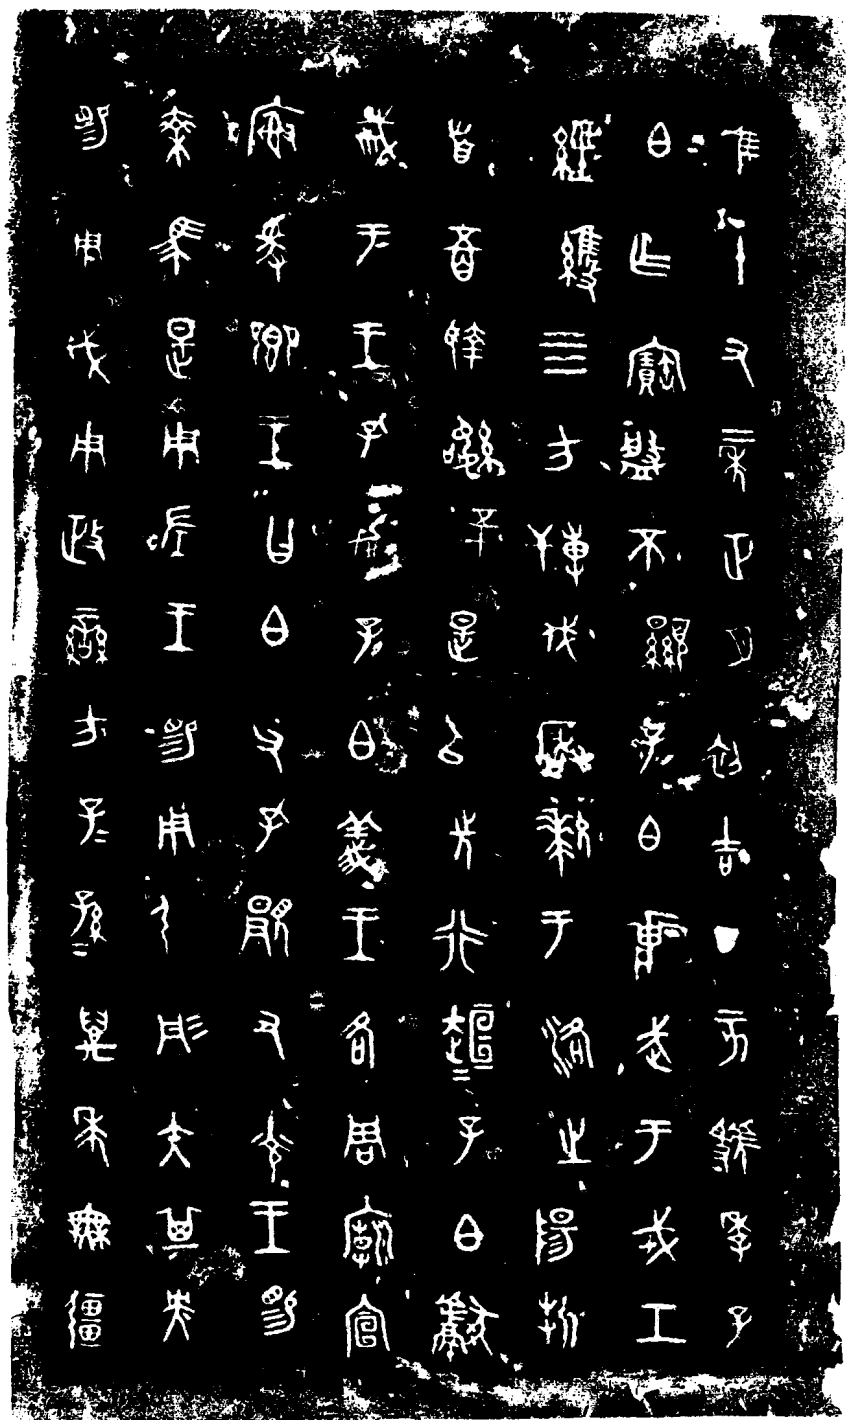 隹十又二年正月初吉丁亥虢季子
白乍寶盤不顯子白壯武于戎工
經維四方搏伐玁狁于洛之陽折
首五百執訊五十是以先行趄=子白獻
馘于王王孔加子白義王各周廟宣
榭爰鄉王曰白父孔顯又光王賜
乘馬是用左王賜用弓彤矢其央
賜用戉用政蠻方子=孫=萬年無疆